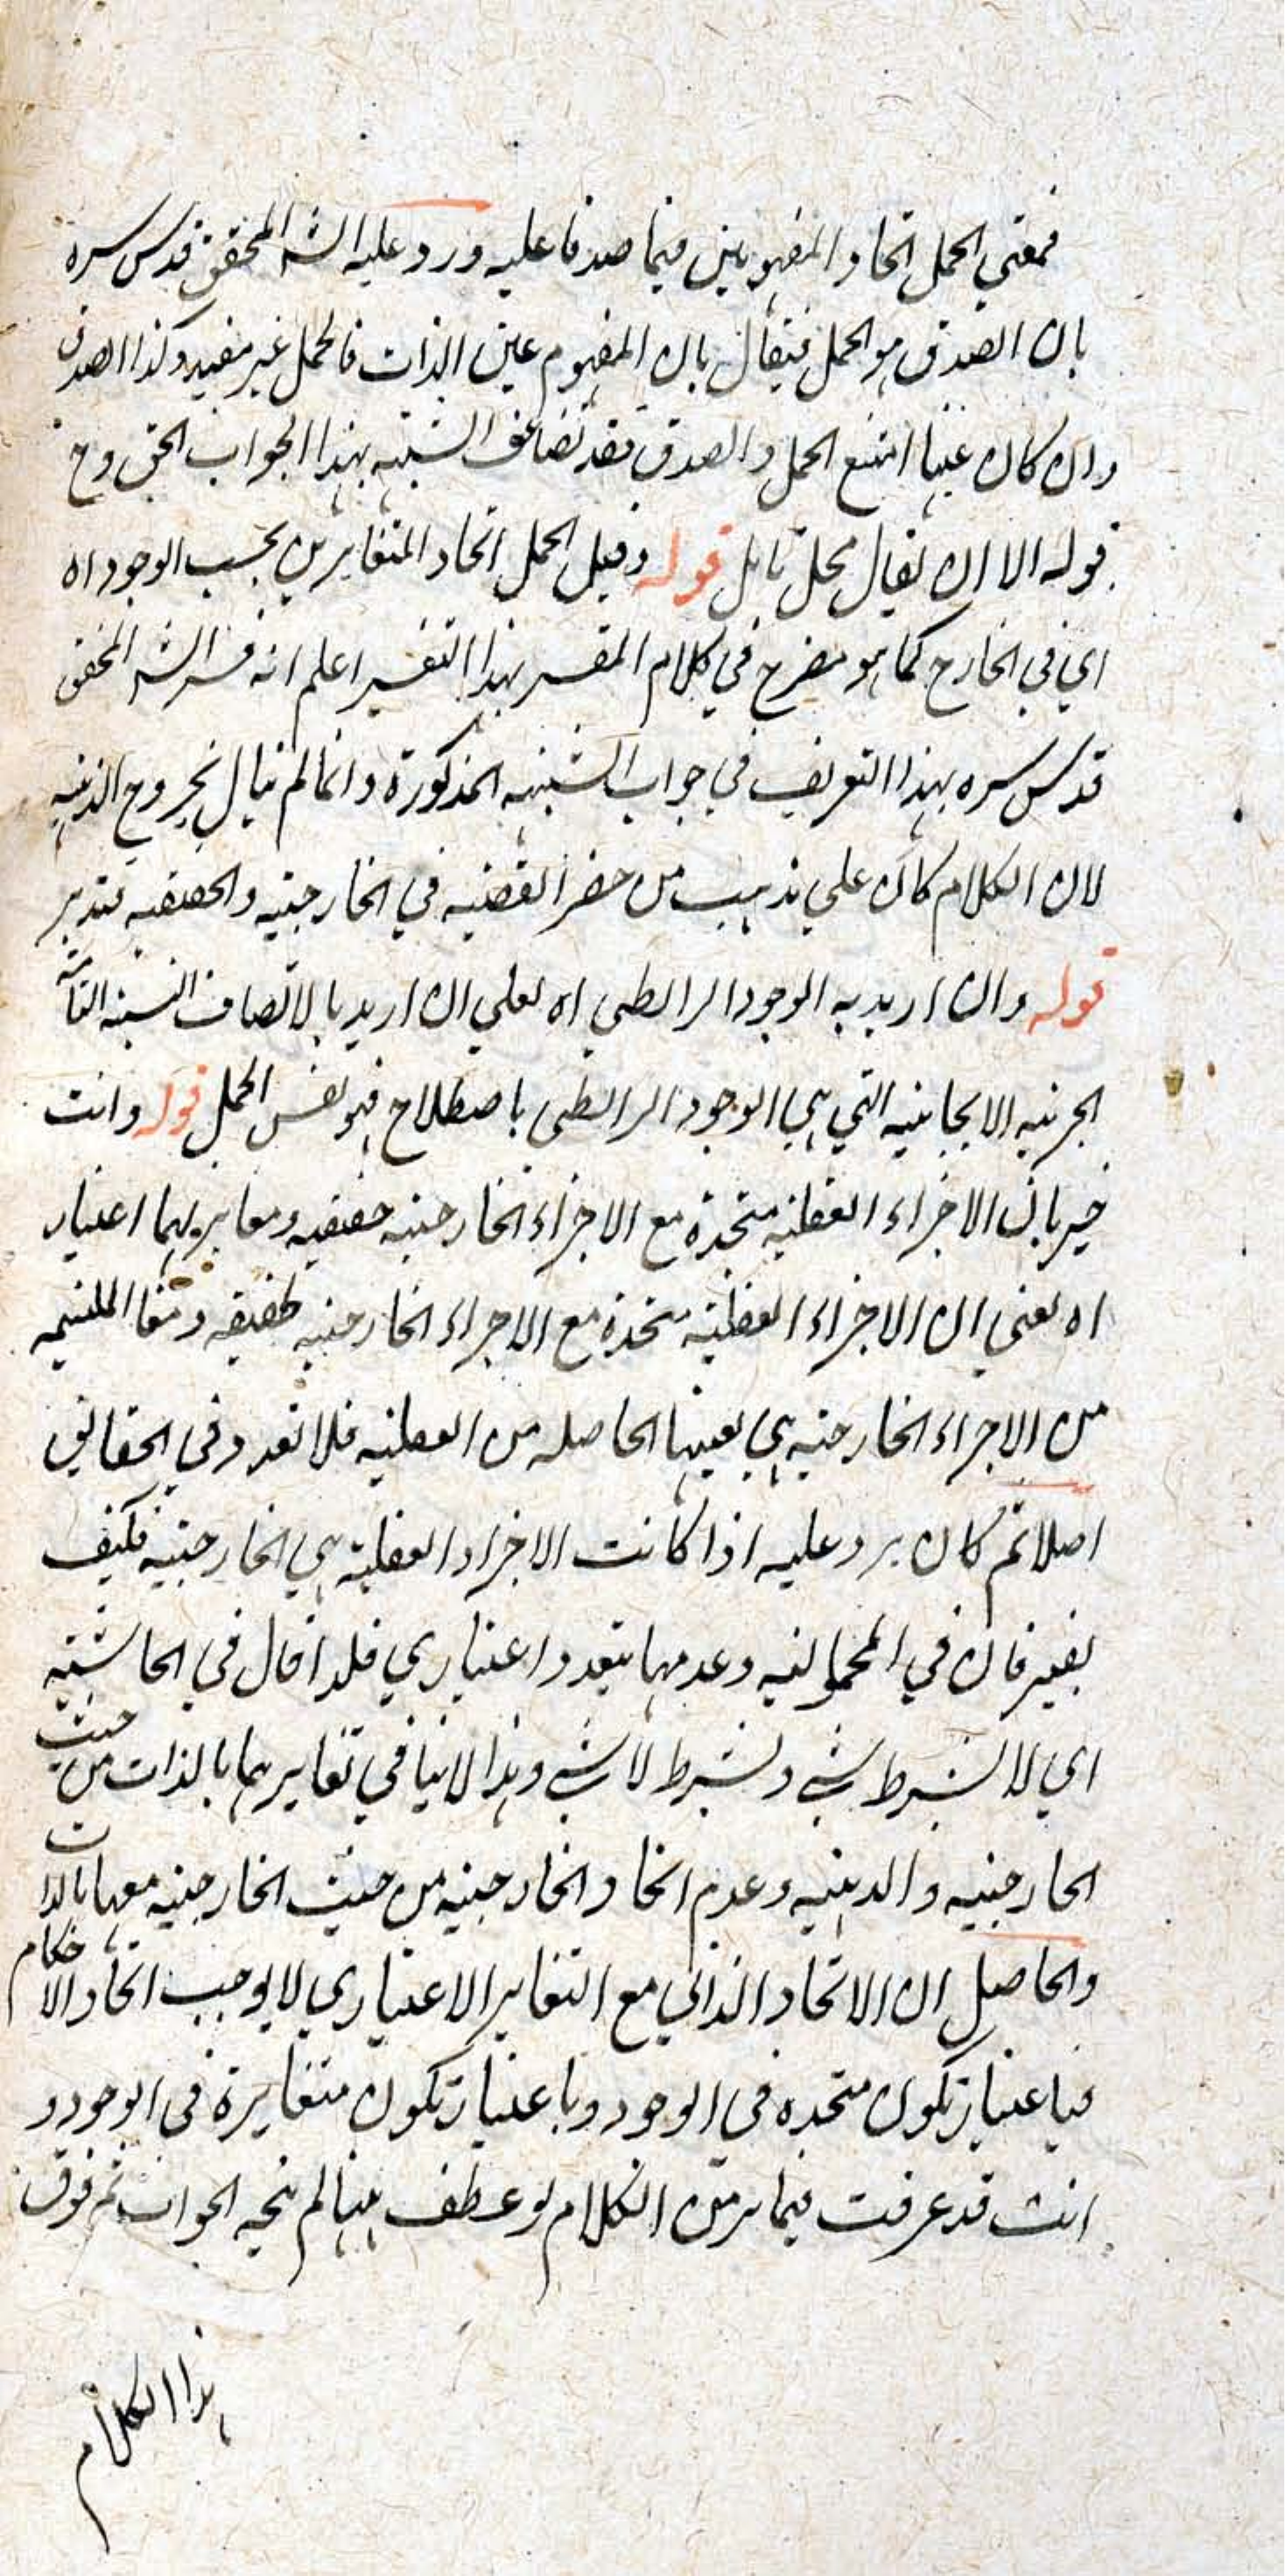 فمعنى الحمل اتحاد المفهومين فيما صدقا عليه ورد عليه الشه المحقق قدس سره
بان الصدق هو الحمل فيقال بان المفهوم عين الذات فالحمل غير مفيد وكذا الصدق
وان كان غيبا امتنع الحمل والصدق فقد تضاعف الشبهه بهذا الجواب الحق وح
قوله الا ان يقال محل تامل قوله وقيل الحمل اتحاد المتغايرين بحسب الوجود اه
اي في الخارج كما هو مصرح في كلام المفسر بهذا التفسير اعلم انه فسر الشه المحقق
قدس سره بهذا التعريف في جواب الشبهه المذكورة وانما لم يبال بخروج الذهنيه
لان الكلام كان على مذهب من حصر القضيه في الخارجيه والحقيقيه فتدبر
قوله وان اريد به الوجود الرابطي اه يعني ان اريد بالاتصاف النسبه التامه
الخبريه الايجابيه التي هي الوجود الرابطي باصطلاح فهو نفس الحمل قوله وانت
خبير بان الاجزاء العقليه متحدة مع الاجزاء الخارجيه حقيقيه ومغايربهما اعتبار
اه يعني ان الاجزاء العقليه متحدة مع الاجزاء الخارجيه حقيقه
من الاجزاء الخارجيه هي بعينها الحاصله من العقليه فلا تعدد في الحقايق
اصلا ثم كان يرد عليه اذا كانت الاجزاء العقليه هي الخارجيه فكيف
في المحموليه وعدمها بتعدد اعتباري فلذا قال في الحاشيه
اي لا بشرط شي وبشرط لا شي وهذا لا ينافي تغايرهما بالذات من حيث
الخارجيه والذهنيه وعدم اتحاد الخارجيه من حيث الخارجيه معها بالذات
والحاصل ان الاتحاد الذاتي مع التغاير الاعتباري لا يوجب اتحاد الاحكام
فباعتبار تكون متحده في الوجود وباعتبار تكون متغايرة في الوجود و
انت قد عرفت فيما مر من الكلام لو عطف هنا لم يتجه الجواب ثم فوق
هذا الكلام